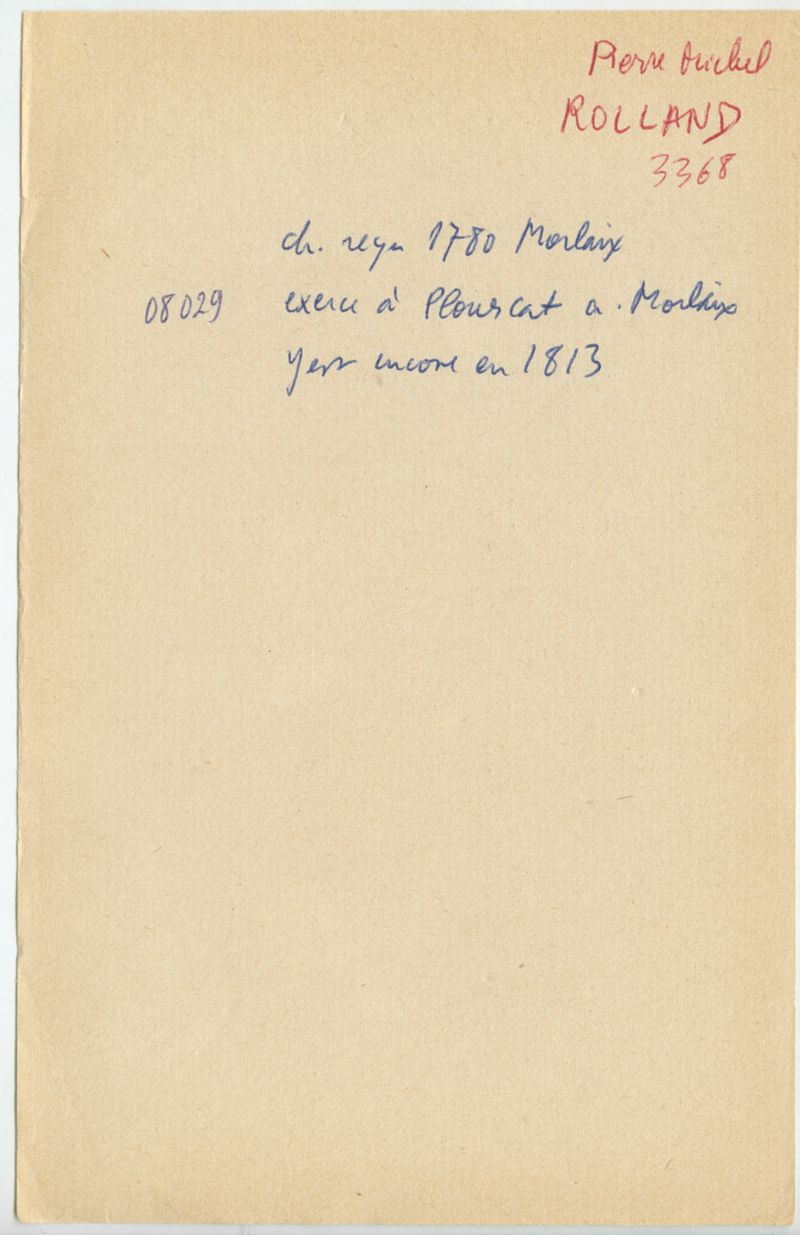 Pierre Michel
ROLLAND
3368
ch. reçu 1780 Morlaix
08029 exerce à Plouescat a. Morlaix
y est encore en 1813